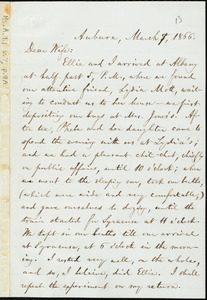 Auburn, March 7, 1866.
Dear Wife:
Ellie and I arrived at Albany
at half past 5, P.M., where we found
our attentive friend, Lydia Mott, wait-
ing to conduct us to her house—we first
depositing our bags at Mrs. Jones's. Af-
ter tea, Phebe and her daughter came to
spend the evening with us at Lydia's;
and we had a pleasant chit-chat, chiefly
on public affairs, until 10 o'clock; when
we went to the sleeping car, took our berths,
(which were wide and very comfortable,)
and gave ourselves to sleep, until the
train started for Syracuse at 11 o'clock.
We kept in our berths till our arrival
at Syracuse, at 6 o'clock in the morn-
ing. I rested very well, on the whole,
and so, I believe, did Ellie. I shall
repeat the experiment on my return.